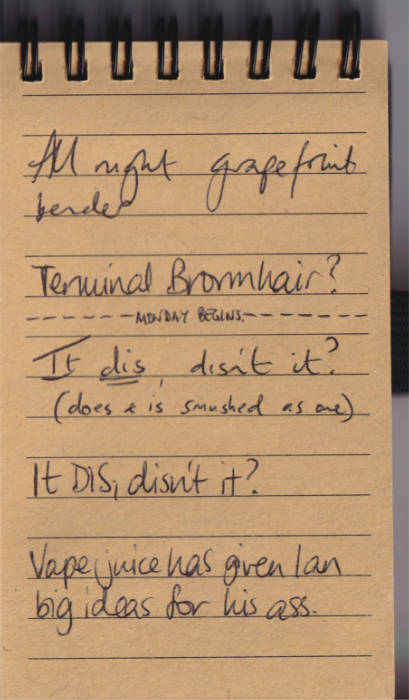 All night grapefruit
bender
Terminal Brormhair?
------MONDAY BEGINS.------
It dis, disn't it?
(does & is smushed as one)
It DIS, disn't it?
Vape juice has given Ian
big ideas for his ass.